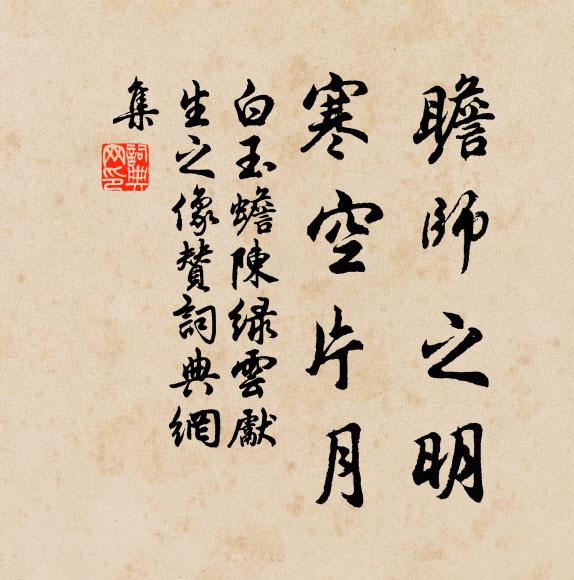 瞻師之明
寒空片月
白玉蟾陳緑雲獻
生之像賛詞典網
集
詞典
网印